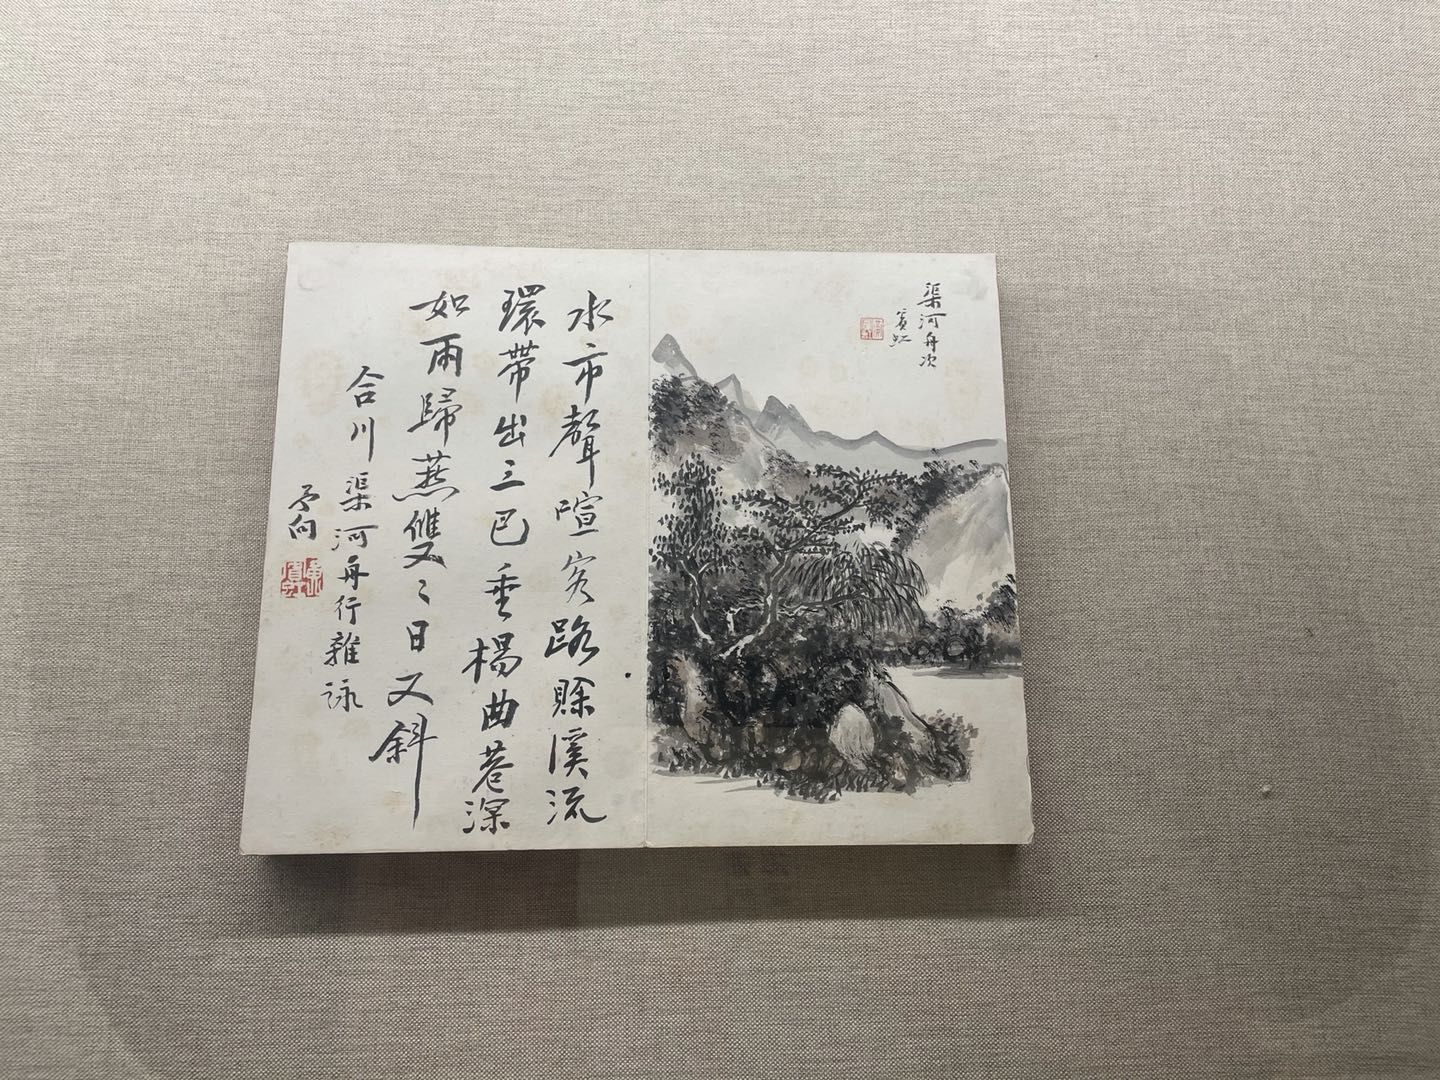 渠河舟次
賓虹
水市聲喧客路賒溪流
環帶出三巴垂楊曲巷深
如雨歸燕雙〻日又斜
合川渠河舟行雜詠
予向